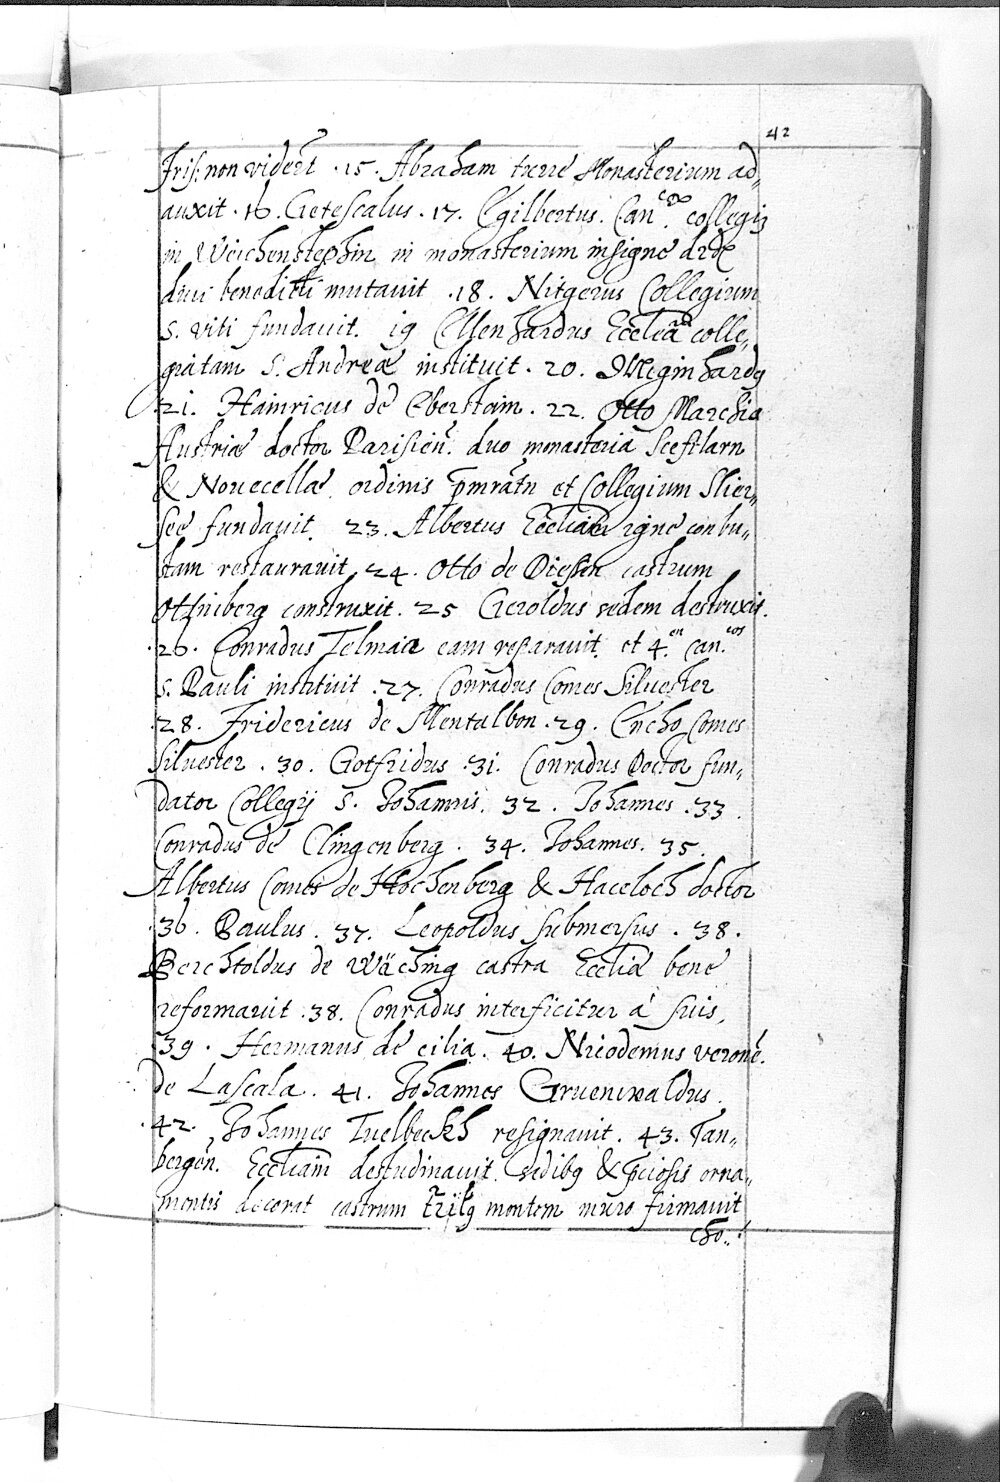 42
Fris: non vidert̄ . 15 . Abraham turre Monasterium ad„
auxit . 16 . Getescalus . 17 . Egilbertus . Can. collegiū
in Weichenstephin in monasterium insigne
diui benedicti mutauit . 18 . Nitgerus Collegium
S. viti fundauit . 19 Ellenhardus Eccliā colle„
giatam S. Andreæ instituit . 20 . Meginhardg
21 . Hainricus de Eberstein . 22 . Otto Marchia
Austriæ doctor Parisien̄ . duo monasteria Sceftlarn
& Nouecellæ ordinis p̄mratn̄ et Collegium Slier„
see fundauit . 23 . Albertus Eccliam igne conbu„
stam restaurauit 24 . Otto de Diessen castrum
Ottinberg construxit . 25 Geroldus sedem destruxit .
. 26 . Conradus Telman eam reparauit . et 4.en Can.cos
S. Pauli instituit . 27 . Conradus Comes Siluester
. 28 . Fridericus de Mentalbon . 29 . Encho Comes
Siluester . 30 . Gotfridus . 31 . Conradus Doctor fun„
dator Collegij S. Johannis . 32 . Johannes . 33 .
Conradus de Clingenberg . 34 . Johannes . 35 .
Albertus Comes de Hochenberg & Haceloch doctor
. 36 . Paulus . 37 . Leopoldus submersus . 38 .
Berchtoldus de Wäching castra Eccliæ bene
reformauit . 38 . Conradus interficitur à suis ,
. 39 . Hermanus de cilia . 40 . Nicodemus veronē .
de Lascala . 41 . Johannes Gruenwaldus .
. 42 . Johannes Tuelbeckh resignauit . 43 . Tan„
bergen̄ . Eccliam destudinauit . &
mentis decorat castrum montem muro firmauit
cho..